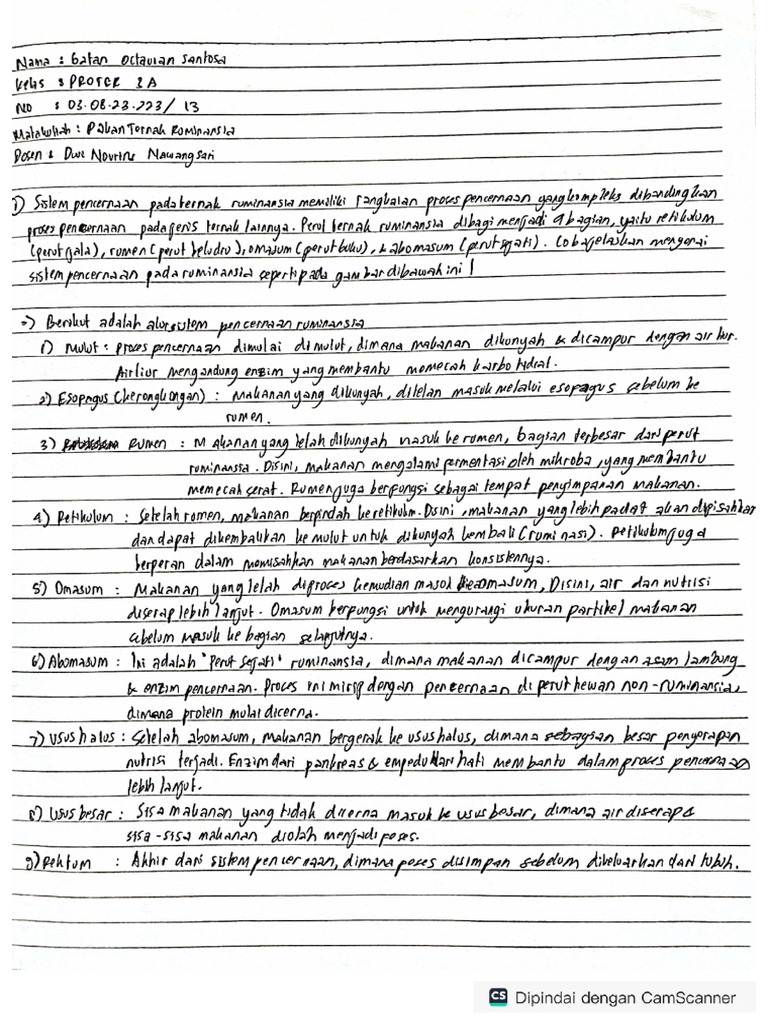 Nama : Gatan Octavian Santosa
Kelas : PROTER 3A
No : 03.08.23.223 / 13
Matakuliah : Pakan Ternak Ruminansia
Dosen : Dwi Novrini Nawangsari
1) Sistem pencernaan pada ternak ruminansia memiliki rangkaian proses pencernaan yang kompleks dibandingkan
proses pencernaan pada jenis ternak lainnya. Perut ternak ruminansia dibagi menjadi 4 bagian, yaitu retikulum
(perut jala), rumen (perut beludru), omasum (perut buku), & abomasum (perut sejati). Coba jelaskan mengenai
sistem pencernaan pada ruminansia seperti pada gambar dibawah ini !
=) Berikut adalah alur sistem pencernaan ruminansia
1) Mulut : proses pencernaan dimulai di mulut, dimana makanan dikunyah & dicampur dengan air liur.
Air liur mengandung enzim yang membantu memecah karbohidrat.
2) Esofagus (kerongkongan) : Makanan yang dikunyah, ditelan masuk melalui esopagus sebelum ke
rumen.
3) Rumen : Makanan yang telah dikunyah masuk ke rumen, bagian terbesar dari perut
ruminansia. Disini, makanan mengalami fermentasi oleh mikroba, yang membantu
memecah serat. Rumen juga berfungsi sebagai tempat penyimpanan makanan.
4) Retikulum : Setelah rumen, makanan berpindah ke retikulum. Disini, makanan yang lebih padat akan dipisahkan
dan dapat dikembalikan ke mulut untuk dikunyah kembali (ruminasi). Retikulum juga
berperan dalam memisahkan makanan berdasarkan konsistennya.
5) Omasum : Makanan yang telah diproses kemudian masuk ke omasum, Disini, air dan nutrisi
diserap lebih lanjut. Omasum berfungsi untuk mengurangi ukuran partikel makanan
sebelum masuk ke bagian selanjutnya.
6) Abomasum : Ini adalah "perut sejati" ruminansia, dimana makanan dicampur dengan asam lambung
& enzim pencernaan. Proses ini mirip dengan pencernaan di perut hewan non-ruminansia,
dimana protein mulai dicerna.
7) Usus halus : Setelah abomasum, makanan bergerak ke usus halus, dimana sebagian besar penyerapan
nutrisi terjadi. Enzim dari pankreas & empedu dari hati membantu dalam proses pencernaan
lebih lanjut.
8) Usus besar : Sisa makanan yang tidak dicerna masuk ke usus besar, dimana air diserap &
sisa-sisa makanan diolah menjadi feses.
9) Rektum : Akhir dari sistem pencernaan, dimana feses disimpan sebelum dikeluarkan dari tubuh.
CS Dipindai dengan CamScanner